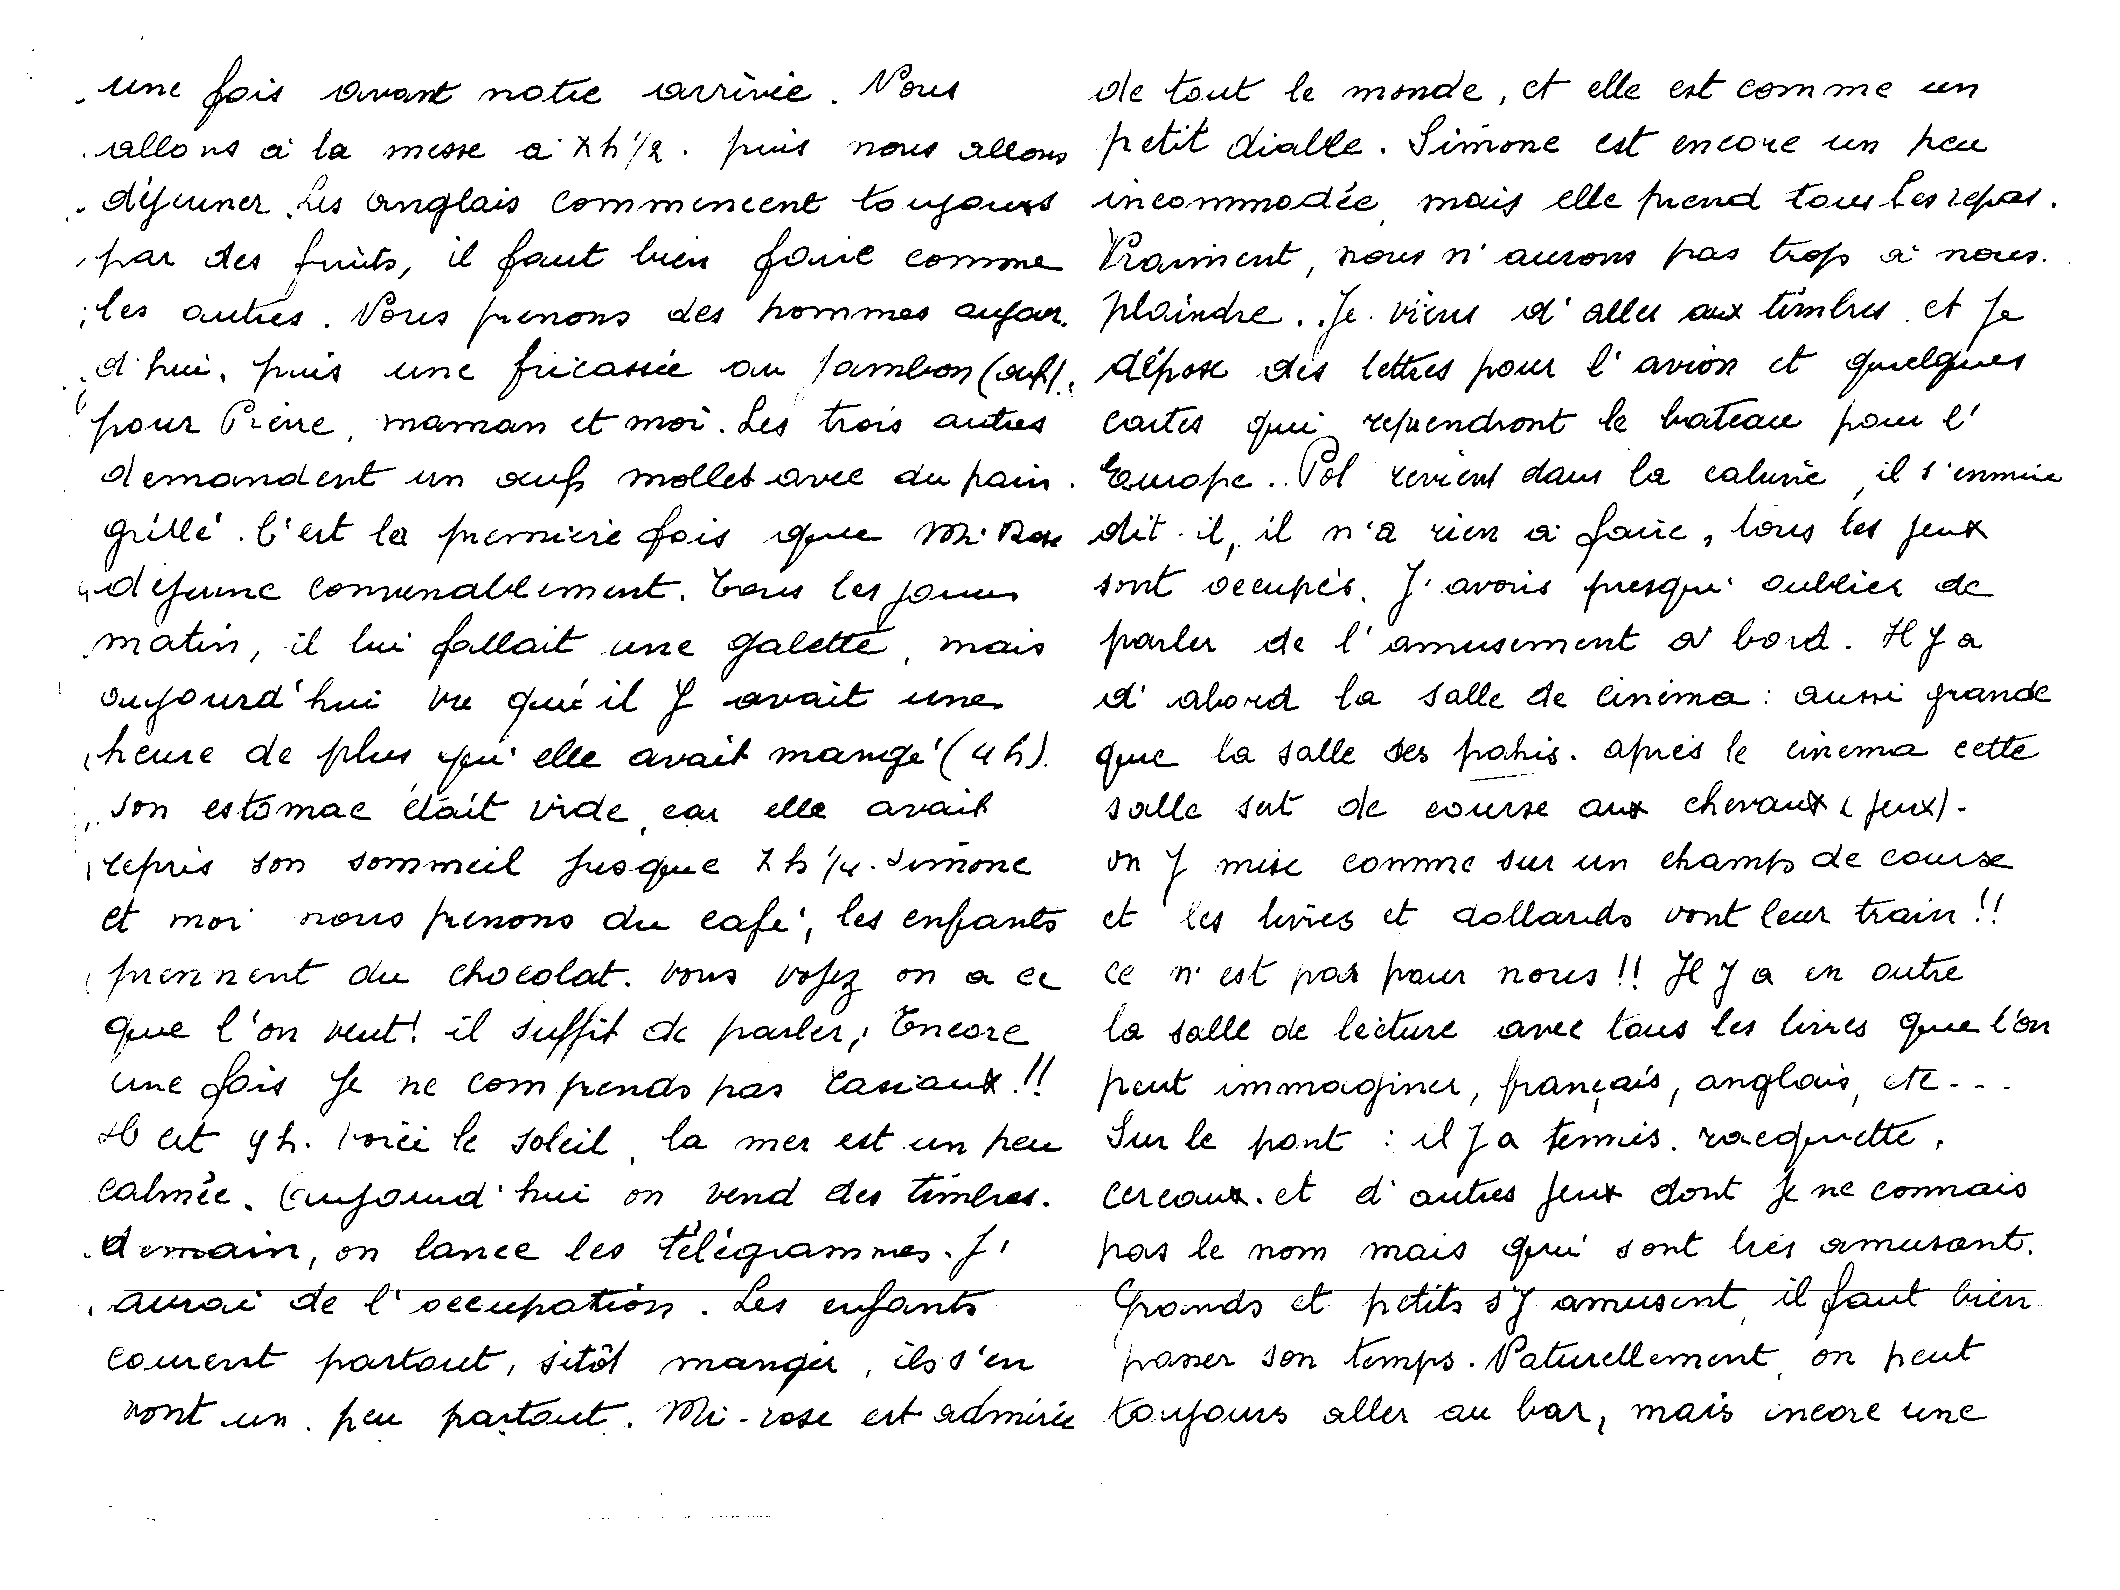 une fois avant notre arrivée. Nous
allons à la messe à 7h 1/2. puis nous allons
déjeuner. Les anglais commencent toujours
par des fruits, il faut bien faire comme
les autres. Nous prenons des pommes aujour.
d'hui, puis une fricassée au jambon (oeuf).
pour Pierre, maman et moi. Les trois autres
demandent un oeuf mollet avec du pain.
grillé. C'est la première fois que Mi-Rose
déjeune convenablement. Tous les jours
matin, il lui fallait une galette, mais
aujourd'hui vu qu'il y avait une
heure de plus qu'elle avait mangé (4h).
son estomac était vide, car elle avait
repris son sommeil jusque 7h 1/4. Simone
et moi nous prenons du café, les enfants
prennent du chocolat. vous voyez on a ce
que l'on veut! il suffit de parler, Encore
une fois je ne comprends pas Casiaux!!
Il est 9h. voici le soleil, la mer est un peu
calmée. Aujourd'hui on vend des timbres.
demain, on lance les télégrammes. J'
aurai de l'occupation. Les enfants
courent partout, sitôt manger, ils s'en
vont un peu partout. Mi-rose est admirée
de tout le monde, et elle est comme un
petit diable. Simone est encore un peu
incommodée, mais elle prend tous les repas.
Vraiment, nous n'aurons pas trop à nous.
plaindre. Je viens d'aller aux timbres et je
dépose des lettres pour l'avion et quelques
cartes qui reprendront le bateau pour l'
Europe. Pol revient dans la cabine, il s'ennuie
dit-il, il n'a rien à faire, tous les jeux
sont occupés. J'avais presqu'oublier de
parler de l'amusement à bord. Il y a
d'abord la salle de cinéma: aussi grande
que la salle des pahis. après le cinéma cette
salle sert de course aux chevaux (jeux).
on y mise comme sur un champs de course
et les livres et dollards vont leur train!!
ce n'est pas pour nous!! Il y a en outre
la salle de lecture avec tous les livres que l'on
peut immaginer, français, anglais, etc...
Sur le pont: il y a tennis. racquette,
cerceaux. et d'autres jeux dont je ne connais
pas le nom mais qui sont très amusant.
Grands et petits s'y amusent, il faut bien
passer son temps. Naturellement, on peut
toujours aller au bar, mais encore une